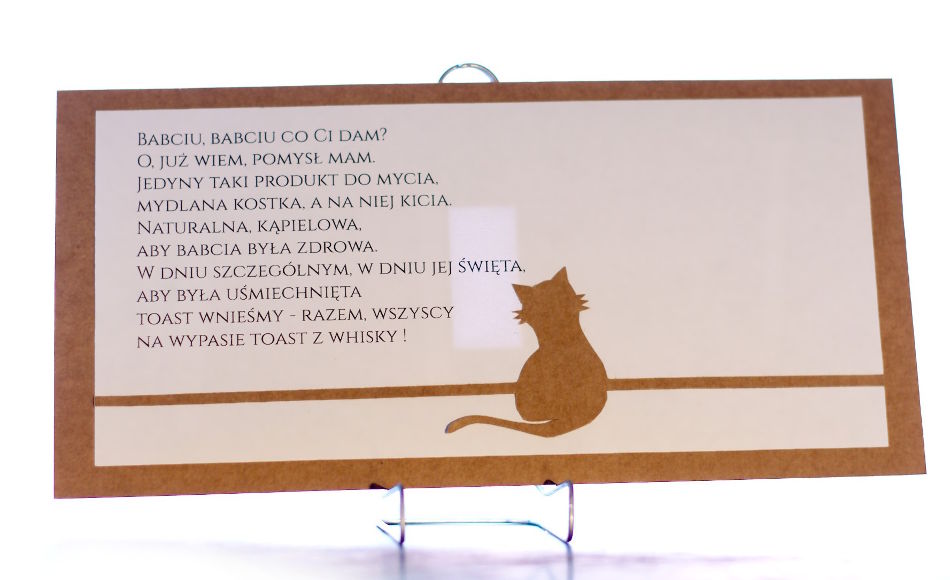 Babciu, babciu co Ci dam?
O, już wiem, pomysł mam.
Jedyny taki produkt do mycia,
mydlana kostka, a na niej kicia.
Naturalna, kąpielowa,
aby babcia była zdrowa.
W dniu szczególnym, w dniu jej święta,
aby była uśmiechnięta
toast wnieśmy - razem, wszyscy
na wypasie toast z whisky !